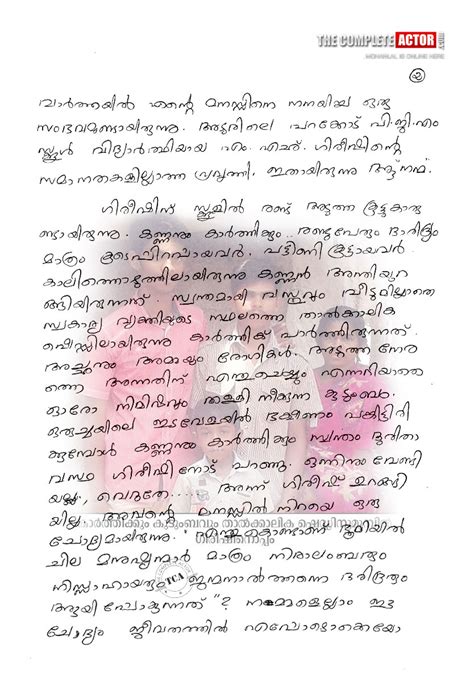 THE COMPLETE ACTOR .COM
MOHANLAL IS ONLINE HERE
2
വാർത്തയിൽ എന്റെ മനസ്സിനെ നനയിച്ച ഒരു
സംഭവമുണ്ടായിരുന്നു. അടൂരിലെ പറക്കോട് പി.ജി.എം
സ്കൂൾ വിദ്യാർത്ഥിയായ എം. എസ്. ഗിരീഷിന്റെ
സമാനതകളില്ലാത്ത പ്രവൃത്തി. ഇതായിരുന്നു ആ നന്മ.
ഗിരീഷിന് സ്കൂളിൽ രണ്ട് അടുത്ത കൂട്ടുകാരു
ണ്ടായിരുന്നു. കണ്ണനും കാർത്തികും. രണ്ടുപേരും ദാരിദ്ര്യം
മാത്രം കൂടെപ്പിറപ്പായവർ. പട്ടിണി കൂട്ടായവർ.
കാലിത്തൊഴുത്തിലായിരുന്നു കണ്ണൻ അന്തിയുറ
ങ്ങിയിരുന്നത്. സ്വന്തമായി വസ്തുവും വീടുമില്ലാതെ
സ്വകാര്യ വ്യക്തിയുടെ സ്ഥലത്തെ താൽക്കാലിക
ഷെഡ്ഡിലായിരുന്നു കാർത്തിക് പാർത്തിരുന്നത്.
അച്ഛനും അമ്മയും രോഗികൾ. അടുത്ത നേര
ത്തെ അന്നത്തിന് എന്തുചെയ്യും എന്നറിയാതെ
ഓരോ നിമിഷവും തള്ളി നീക്കുന്ന കുടുംബം.
ഒരുച്ചയിലെ ഇടവേളയിൽ ഭക്ഷണം പങ്കിട്ടിരി
ക്കുമ്പോൾ കണ്ണനും കാർത്തികും സ്വന്തം ദുരിതാ
വസ്ഥ ഗിരീഷിനോട് പറഞ്ഞു. ഒന്നിനും വേണ്ടി
യല്ല, വെറുതേ.... അന്ന് ഗിരീഷ് ഉറങ്ങി
യില്ല. അവന്റെ മനസ്സിൽ നിറയെ ഒരു
കാർത്തിക്കും കുടുംബവും താൽക്കാലിക ഷെഡ്ഡിനുമുന്നിൽ
ചോദ്യമായിരുന്നു. "എന്തുകൊണ്ടാണ് ഭൂമിയിൽ
ഗിരീഷിനൊപ്പം
ചില മനുഷ്യന്മാർ മാത്രം നിരാലംബരും
നിസ്സഹായരും ജന്മനാൽത്തന്നെ ദരിദ്രരും
TCA
ആയി പോകുന്നത്"? നമ്മളെല്ലാം ഈ
ചോദ്യം ജീവിതത്തിൽ എപ്പോഴൊക്കെയോ